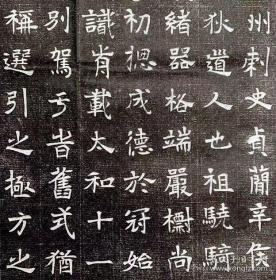 州刺史貞蕳辛侯
狄道人也祖驍騎
緒器格端嚴尚
初揔成德於冠始
識肖載太和十一
別駕亐旹舊式猶
稱選引之極方之